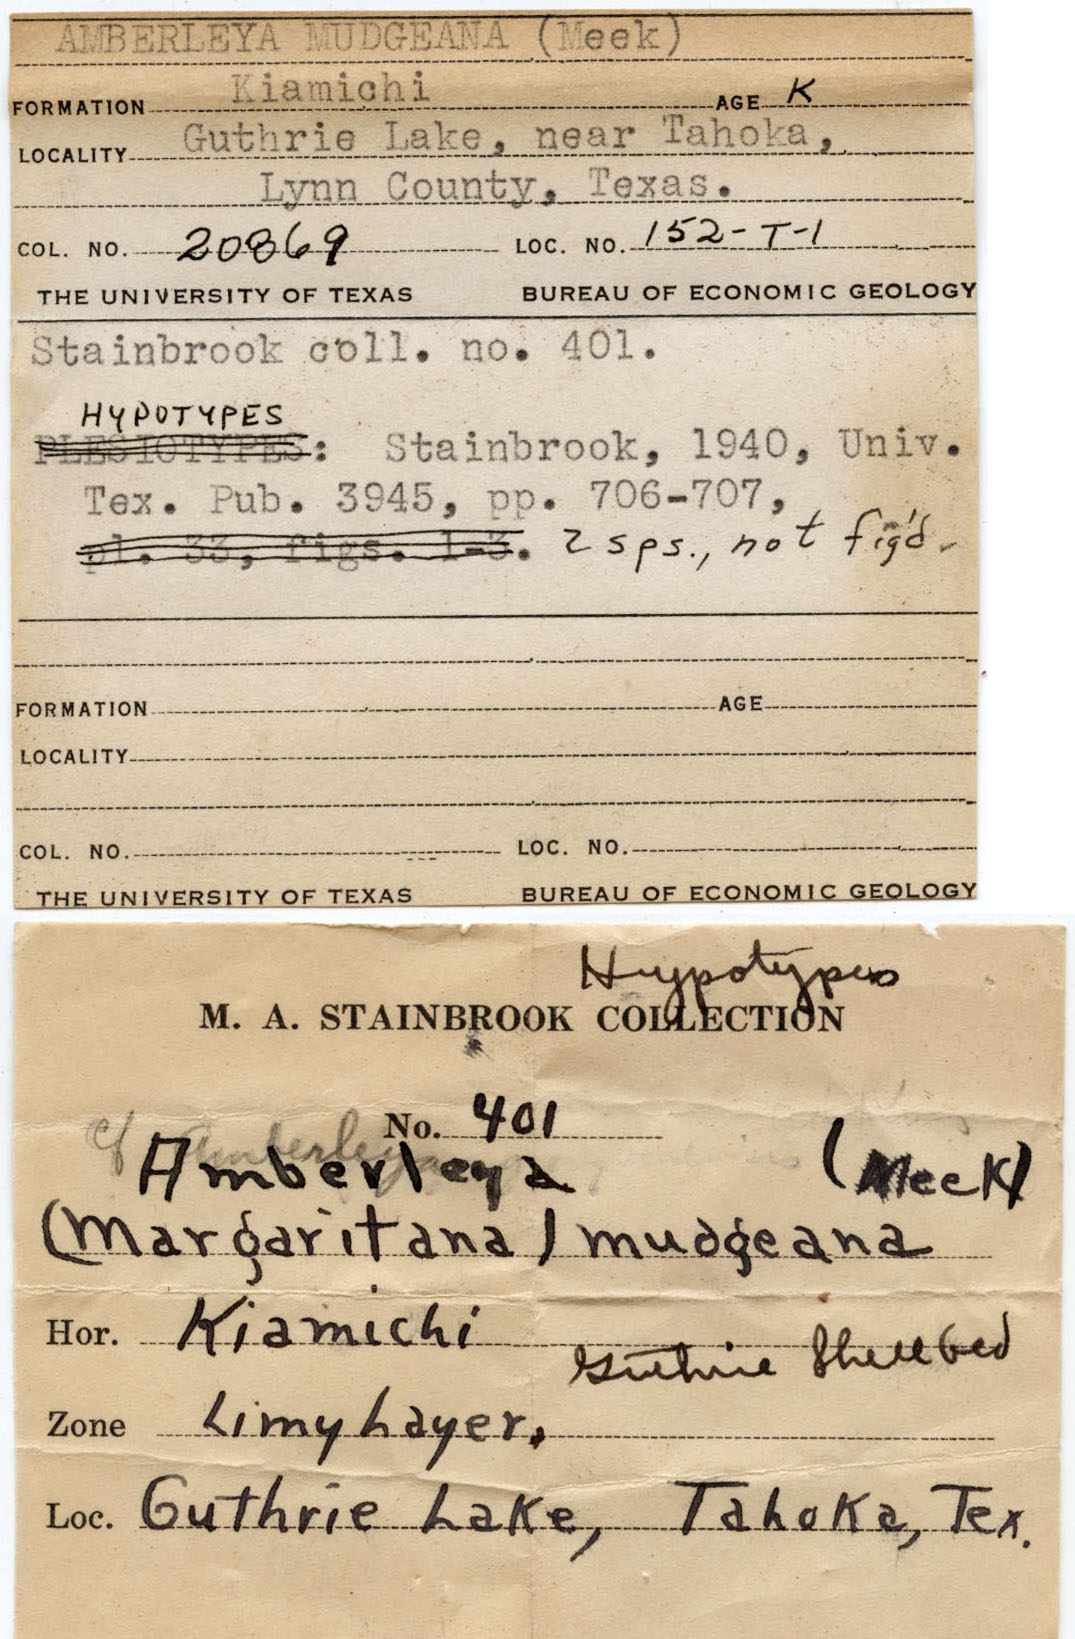 AMBERLEYA MUDGEANA (Meek)
FORMATION Kiamichi AGE K
LOCALITY Guthrie Lake, near Tahoka,
Lynn County, Texas.
COL. NO. 20869 LOC. NO. 152-T-1
THE UNIVERSITY OF TEXAS BUREAU OF ECONOMIC GEOLOGY
Stainbrook coll. no. 401.
HYPOTYPES
PLESIOTYPES: Stainbrook, 1940, Univ.
Tex. Pub. 3945, pp. 706-707,
pl. 33, figs. 1-3. 2 sps., not fig'd.
FORMATION AGE
LOCALITY
COL. NO. LOC. NO.
THE UNIVERSITY OF TEXAS BUREAU OF ECONOMIC GEOLOGY
Hypotypes
M. A. STAINBROOK COLLECTION
No. 401
cf Amberleya
Amberleya (Meek)
(Margaritana) mudgeana
Hor. Kiamichi
Guthrie Shell bed
Zone Limy Layer.
Loc. Guthrie Lake, Tahoka, Tex.